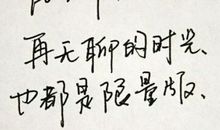 再无聊的时光、
也都是限量版、